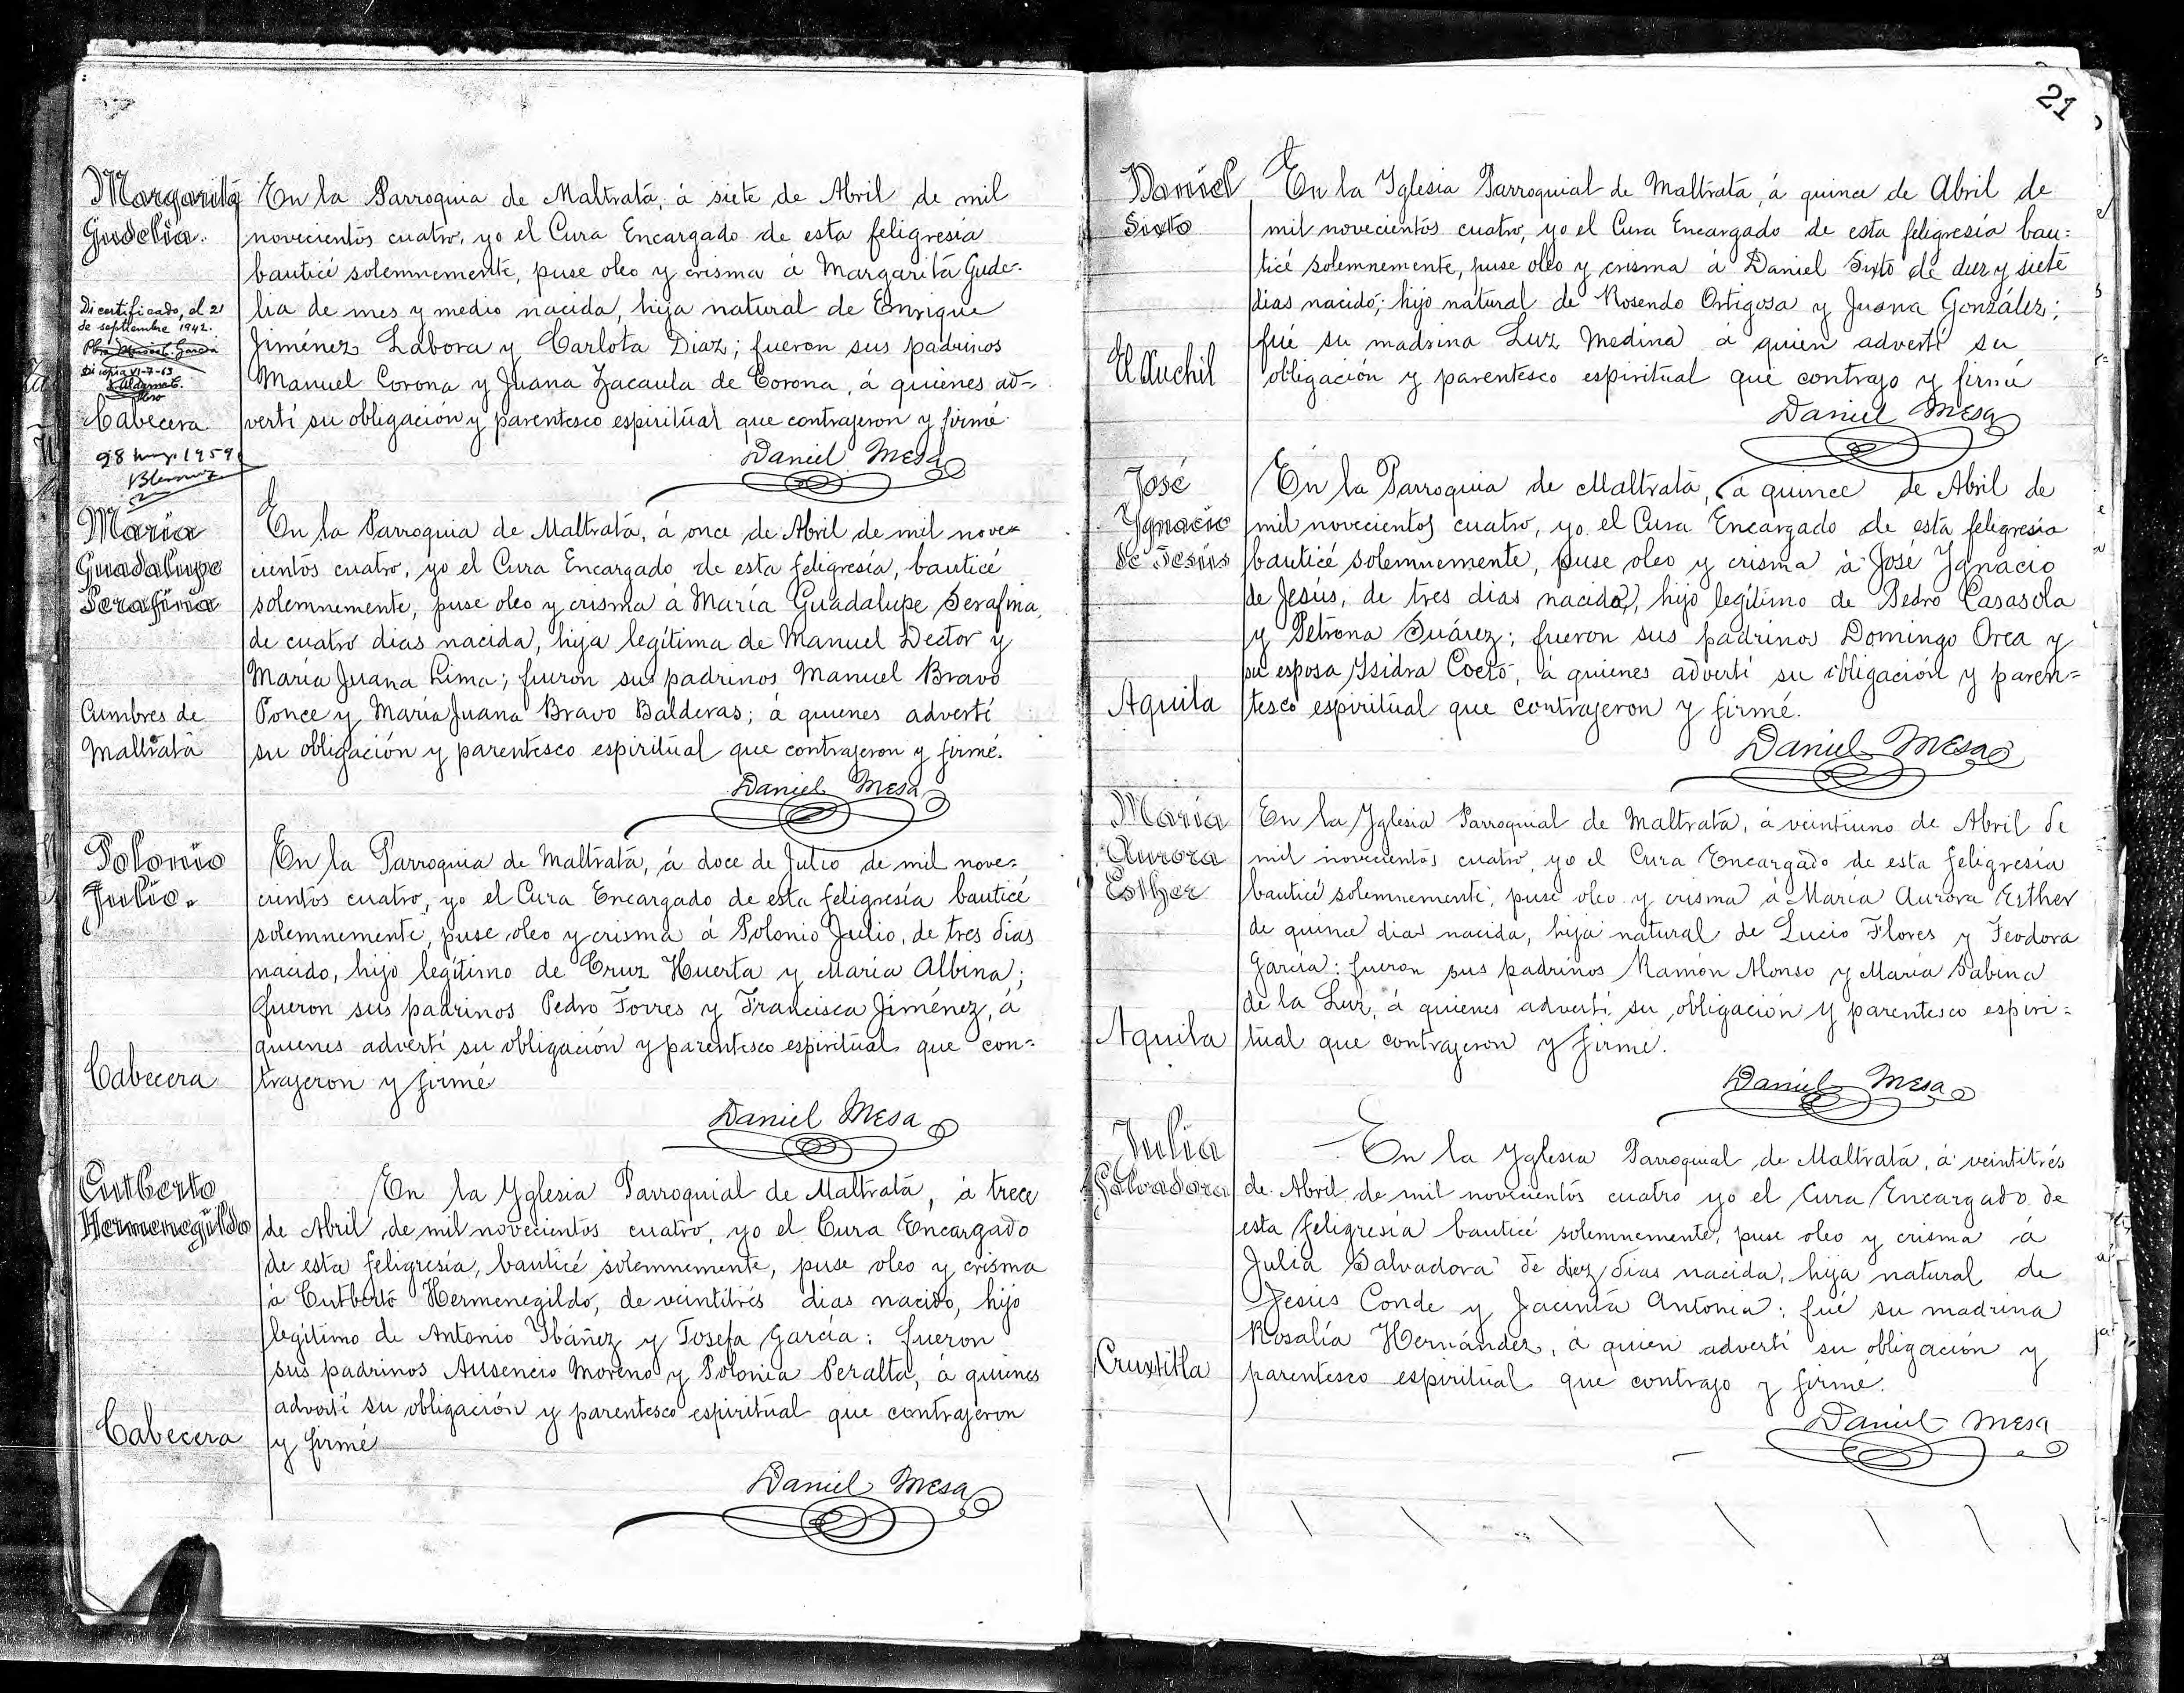 21
Margarita
Gudelia.
Di certificado, el 21
de septiembre 1942.
Di copia VI-7-63
Cabecera
28 1959
En la Parroquia de Maltrata, á siete de Abril de mil
novecientos cuatro, yo el Cura Encargado de esta feligresía
bauticé solemnemente, puse oleo y crisma á Margarita Gude-
lia de mes y medio nacida, hija natural de Enrique
Jiménez Labora y Carlota Diaz; fueron sus padrinos
Manuel Corona y Juana Zacaula de Corona, á quienes ad-
vertí su obligación y parentesco espiritual que contrajeron y firmé.
Daniel Mesa
María
Guadalupe
Serafina
Cumbres de
Maltrata
En la Parroquia de Maltrata, á once de Abril de mil nove-
cientos cuatro, yo el Cura Encargado de esta feligresía, bauticé
solemnemente, puse oleo y crisma á María Guadalupe Serafina,
de cuatro dias nacida, hija legítima de Manuel Dector y
María Juana Lima; fueron sus padrinos Manuel Bravo
Ponce y María Juana Bravo Balderas; á quienes advertí
su obligación y parentesco espiritual que contrajeron y firmé.
Daniel Mesa
Polonio
Julio.
Cabecera
En la Parroquia de Maltrata, á doce de Julio de mil nove-
cientos cuatro, yo el Cura Encargado de esta feligresía bauticé
solemnemente, puse oleo y crisma á Polonio Julio, de tres dias
nacido, hijo legítimo de Cruz Huerta y María Albina;
fueron sus padrinos Pedro Torres y Francisca Jiménez, á
quienes advertí su obligación y parentesco espiritual que con-
trajeron y firmé
Daniel Mesa
Cutberto
Hermenegildo
Cabecera
En la Yglesia Parroquial de Maltrata, á trece
de Abril de mil novecientos cuatro, yo el Cura Encargado
de esta feligresía, bauticé solemnemente, puse oleo y crisma
á Cutberto Hermenegildo, de veintitrés dias nacido, hijo
legítimo de Antonio Ybáñez y Josefa García: fueron
sus padrinos Ausencio Moreno y Polonia Peralta, á quienes
advertí su obligación y parentesco espiritual que contrajeron
y firmé
Daniel Mesa
Daniel
Sixto
El Xuchil
En la Yglesia Parroquial de Maltrata, á quince de Abril de
mil novecientos cuatro, yo el Cura Encargado de esta feligresía bau-
ticé solemnemente, puse oleo y crisma á Daniel Sixto de diez y siete
dias nacido; hijo natural de Rosendo Ortigosa y Juana González;
fué su madrina Luz Medina á quien advertí su
obligación y parentesco espiritual que contrajo y firmé
Daniel Mesa
José
Ygnacio
de Jesús
Aquila
En la Parroquia de Maltrata, á quince de Abril de
mil novecientos cuatro, yo el Cura Encargado de esta feligresía
bauticé solemnemente, puse oleo y crisma á José Ygnacio
de Jesús, de tres dias nacido, hijo legítimo de Pedro Casasola
y Petrona Suárez; fueron sus padrinos Domingo Orea y
su esposa Ysidra Coeto, á quienes advertí su obligación y paren-
tesco espiritual que contrajeron y firmé.
Daniel Mesa
María
Aurora
Esther
Aquila
En la Yglesia Parroquial de Maltrata, á veintiuno de Abril de
mil novecientos cuatro, yo el Cura Encargado de esta feligresía
bauticé solemnemente, puse oleo y crisma á María Aurora Esther
de quince dias nacida, hija natural de Lucio Flores y Teodora
García: fueron sus padrinos Ramón Alonso y María Sabina
de la Luz, á quienes advertí su obligación y parentesco espiri-
tual que contrajeron y firmé.
Daniel Mesa
Julia
Salvadora
Cruxtitla
En la Yglesia Parroquial de Maltrata, á veintitrés
de Abril de mil novecientos cuatro yo el Cura Encargado de
esta feligresía bauticé solemnemente, puse oleo y crisma á
Julia Salvadora de diez dias nacida, hija natural de
Jesús Conde y Jacinta Antonia: fué su madrina
Rosalía Hernández, á quien advertí su obligación y
parentesco espiritual que contrajo y firmé.
Daniel Mesa